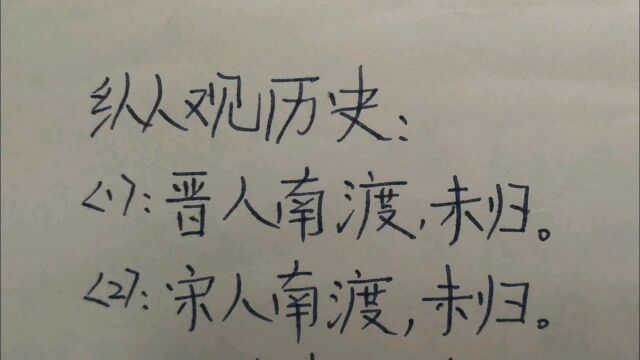 纵观历史：
<1>：晋人南渡，未归。
<2>：宋人南渡，未归。